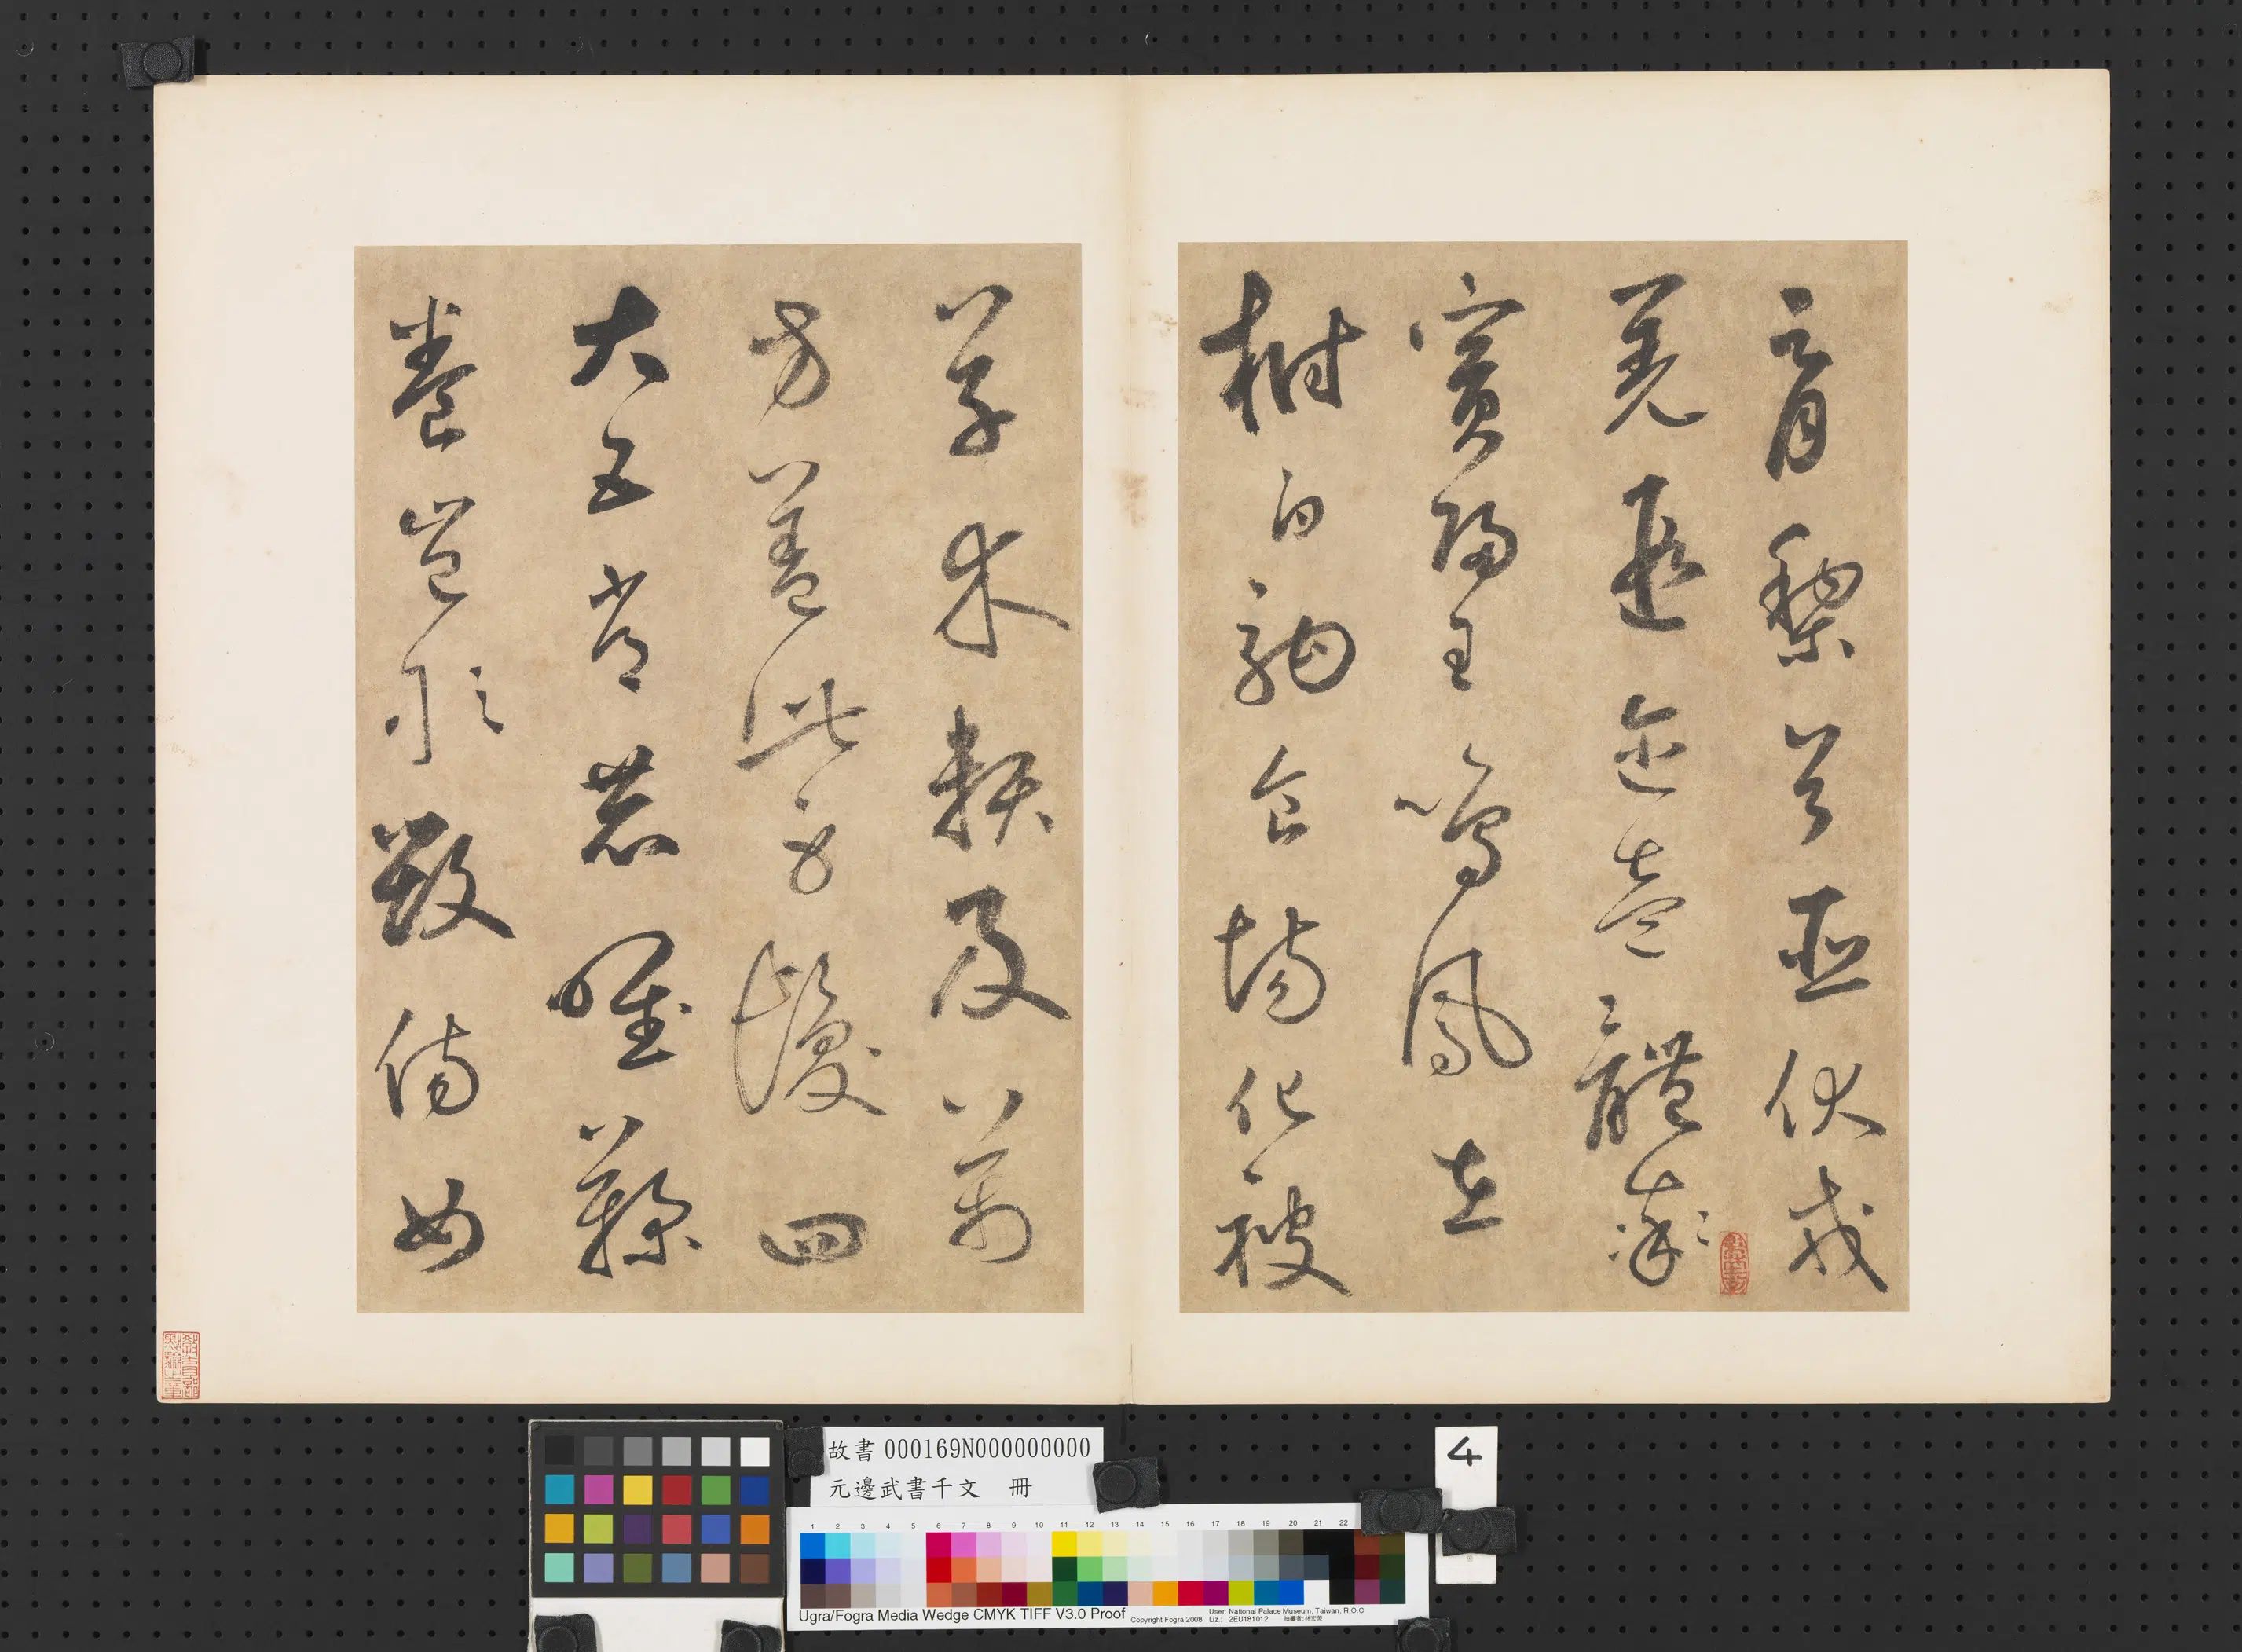 育黎首臣伏戎
羌遐邇壹體率
賓歸王鳴鳳在
樹白駒食場化被
草木賴及萬
方蓋此身髮四
大五常恭惟鞠
養豈敢毀傷女
故書 000169N000000000
元邊武書千文 冊
4
1 2 3 4 5 6 7 8 9 10 11 12 13 14 15 16 17 18 19 20 21 22
Ugra/Fogra Media Wedge CMYK TIFF V3.0 Proof
Copyright Fogra 2008
User: National Palace Museum, Taiwan, R.O.C
Liz.: 2EU181012